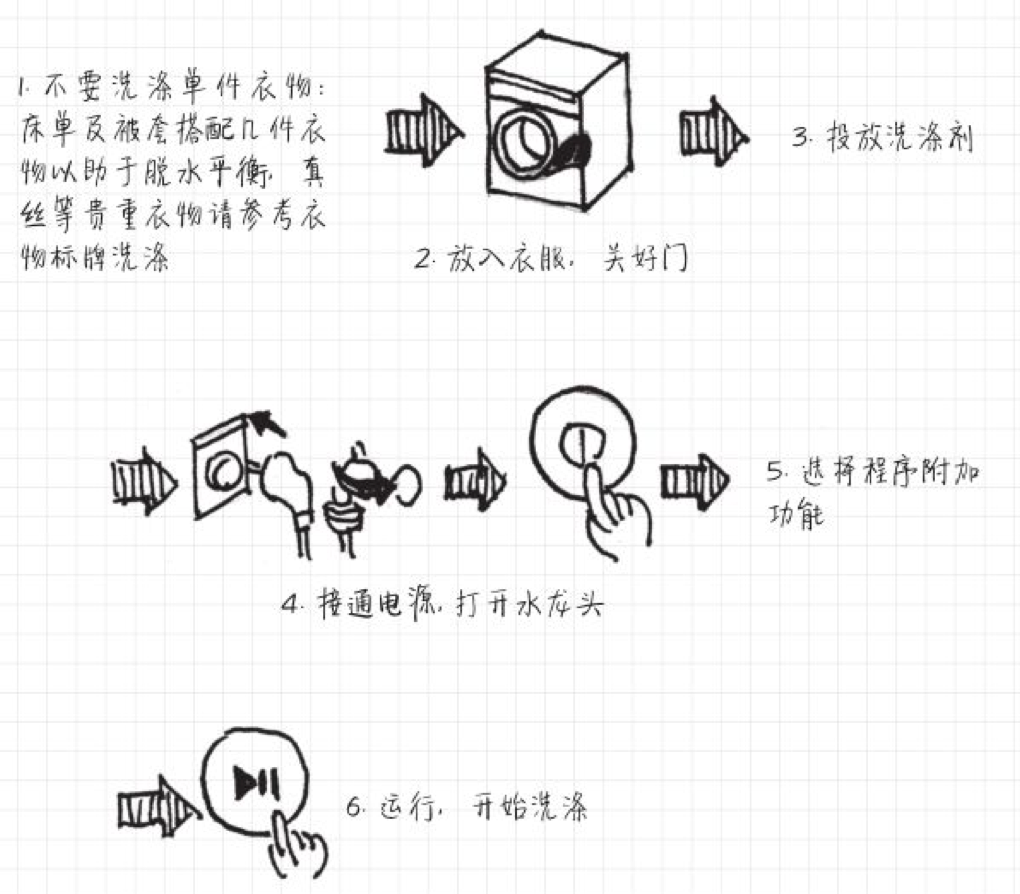 1. 不要洗涤单件衣物:
床单及被套搭配几件衣
物以助于脱水平衡, 真
丝等贵重衣物请参考衣
物标牌洗涤
2. 放入衣服, 关好门
3. 投放洗涤剂
4. 接通电源, 打开水龙头
5. 选择程序附加
功能
6. 运行, 开始洗涤